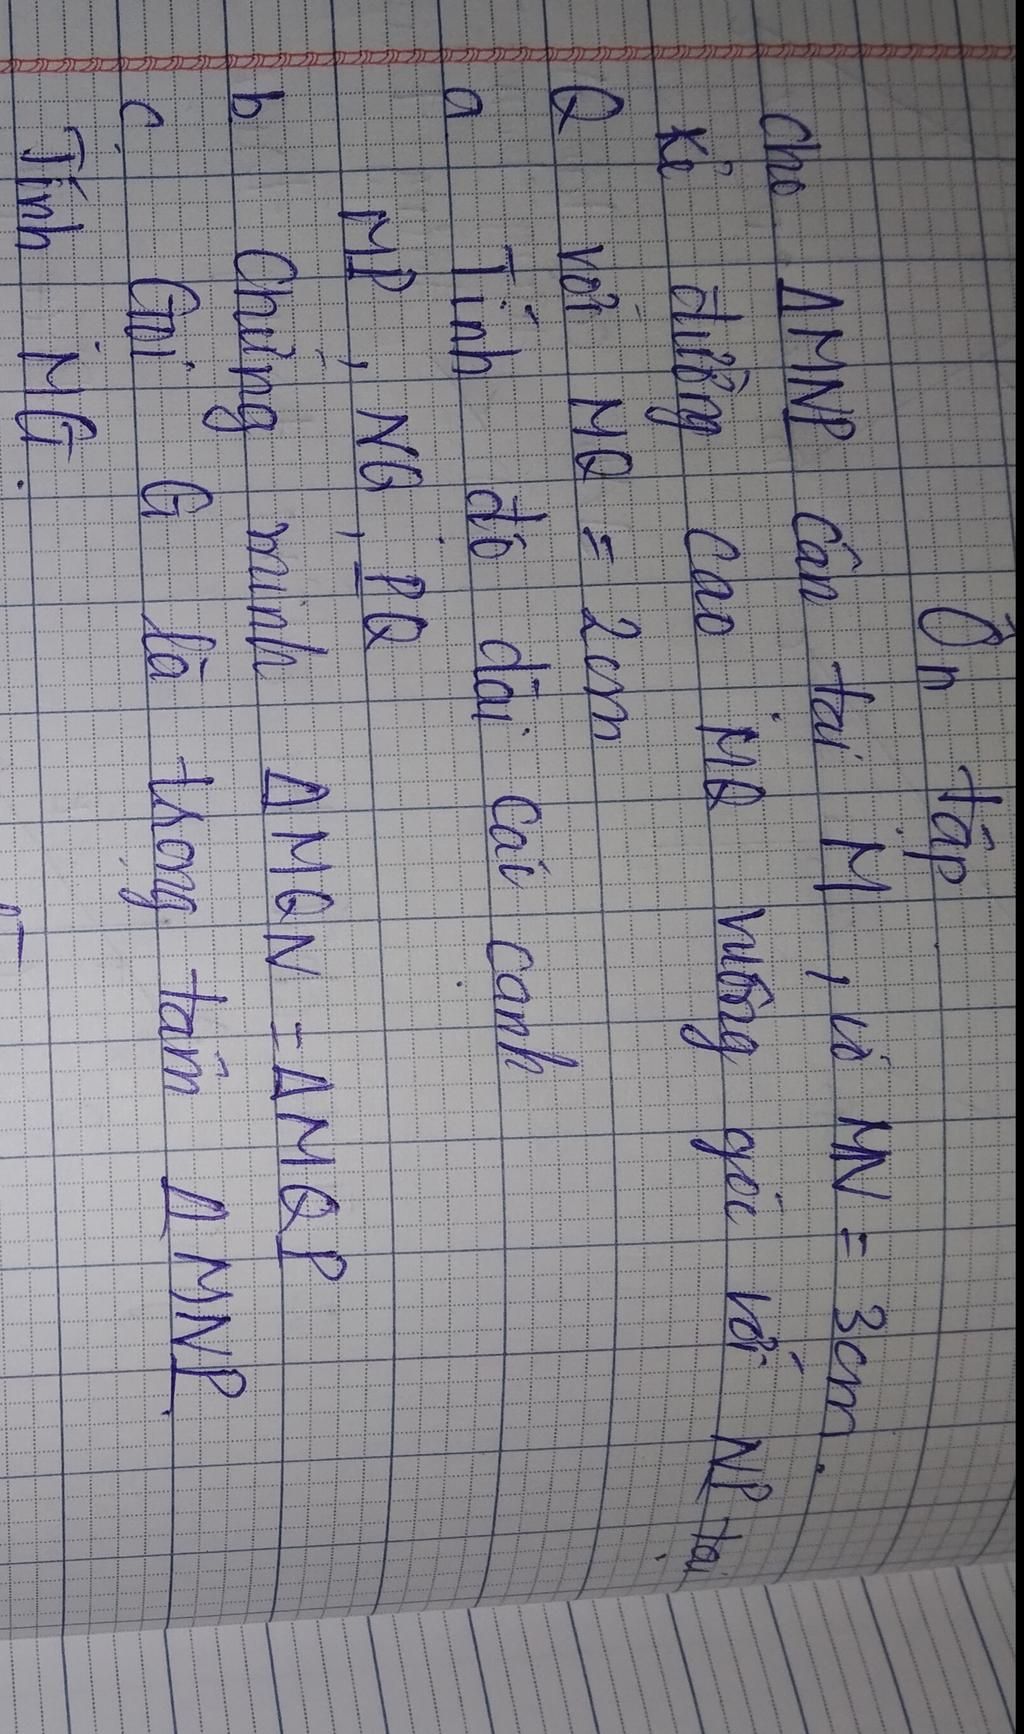 Ôn tập
Cho ΔMNP cân tại M, có MN = 3cm.
Kẻ đường cao MQ vuông góc với NP tại
Q với MQ = 2cm
a Tính độ dài các cạnh
MP, NQ, PQ
b Chứng minh ΔMQN = ΔMQP
c. Gọi G là trọng tâm ΔMNP.
Tính MG.